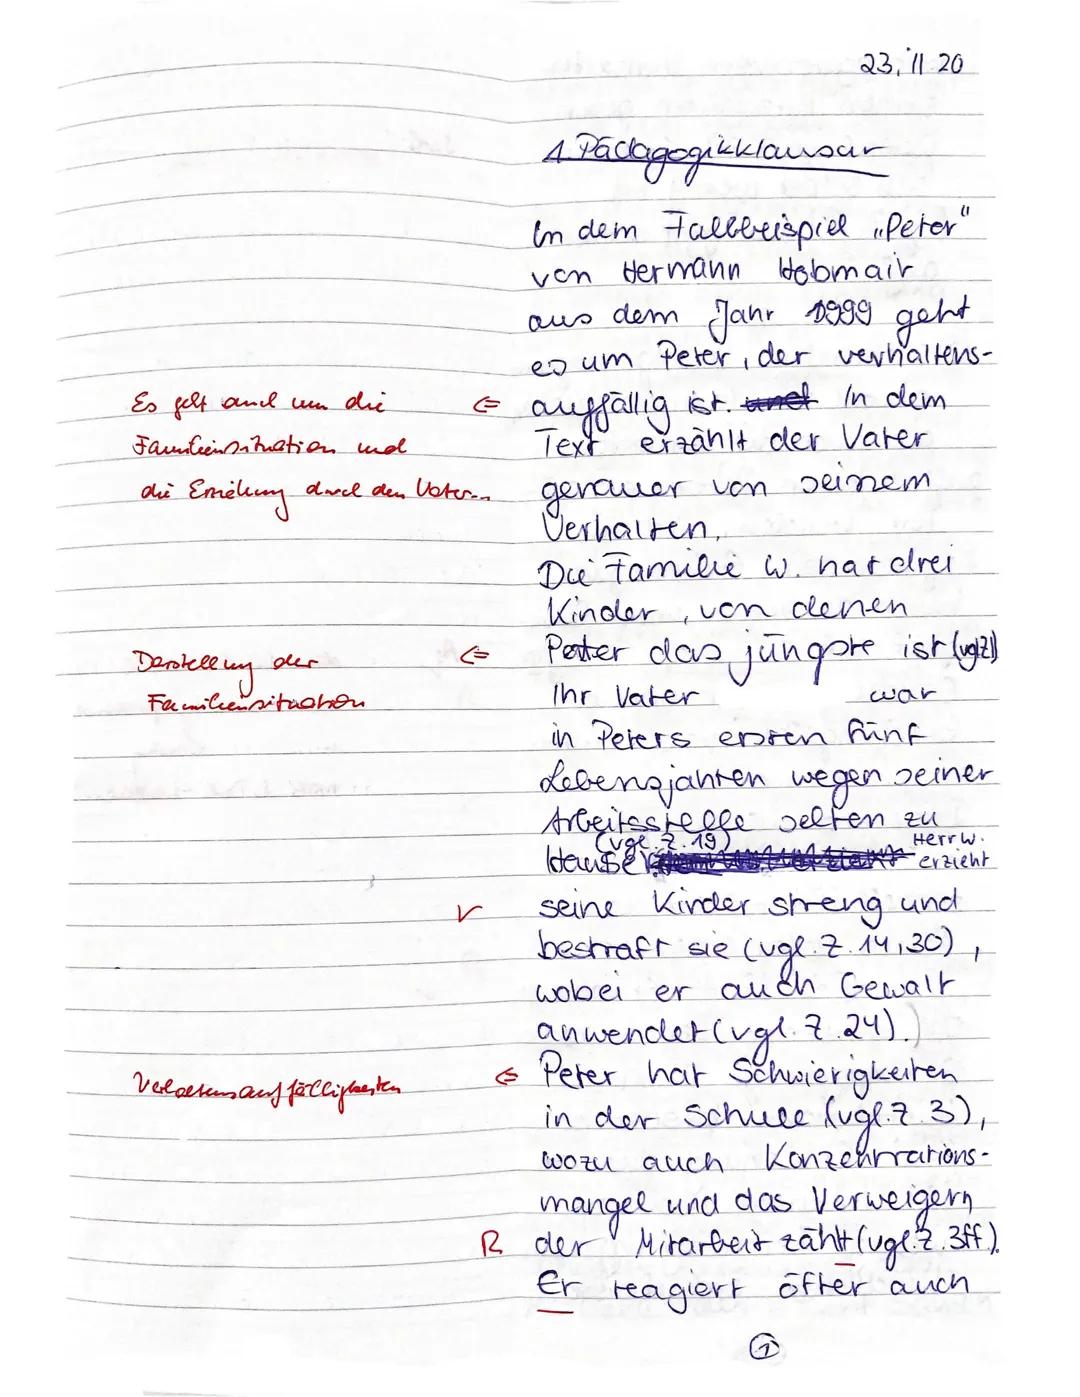 23.11.20
1. Pädagogikklausur
In dem Fallbeispiel „Peter"
von Hermann Hobmair
aus dem Jahr 1999 geht
es um Peter, der verhaltens-
Es geht auch um die
⇐ auffällig ist. und In dem
Familiensituation und
Text erzählt der Vater
die Erziehung durch den Vater
genauer von seinem
Verhalten.
Die Familie W. hat drei
Kinder, von denen
Darstellung der
⇐ Peter das jüngste ist (vgl Z1)
Familiensituation
Ihr Vater war
in Peters ersten fünf
Lebensjahren wegen seiner
Arbeitsstelle selten zu
Hause (vgl. Z. 19) Herr W. erzieht
V seine Kinder streng und
bestraft sie (vgl. Z. 14, 30),
wobei er auch Gewalt
anwendet (vgl. Z. 24).)
Verhaltensauffälligkeiten
⇐ Peter hat Schwierigkeiten
in der Schule (vgl. Z. 3),
wozu auch Konzentrations-
mangel und das Verweigern
R der Mitarbeit zählt (vgl. Z. 3ff.).
Er reagiert öfter auch
1